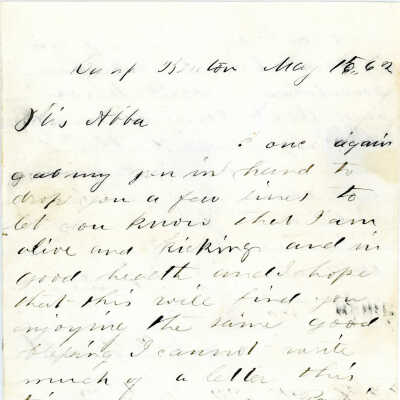 Camp Benton May 15, 62
Mis Abba
I once again
grab my pen in hand to
drop you a few lines to
let you know that I am
alive and kicking and in
good health and I hope
that this will find you
enjoying the same good
blesing I cannot write
much of a letter this